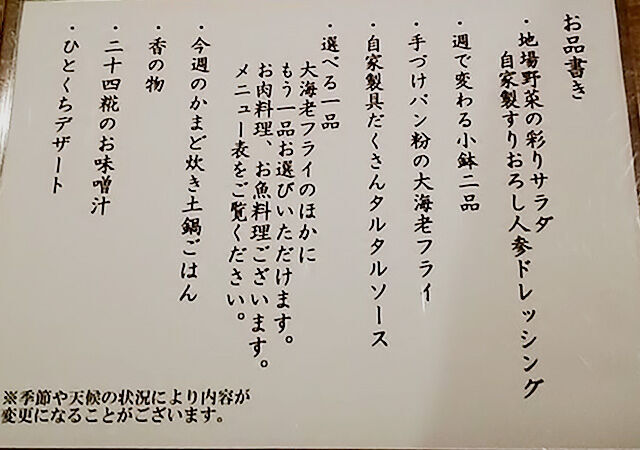 お品書き
・地場野菜の彩りサラダ
自家製すりおろし人参ドレッシング
・週で変わる小鉢二品
・手づけパン粉の大海老フライ
・自家製具だくさんタルタルソース
・選べる一品
大海老フライのほかに
もう一品お選びいただけます。
お肉料理、お魚料理ございます。
メニュー表をご覧ください。
・今週のかまど炊き土鍋ごはん
・香の物
・二十四糀のお味噌汁
・ひとくちデザート
※季節や天候の状況により内容が
変更になることがございます。